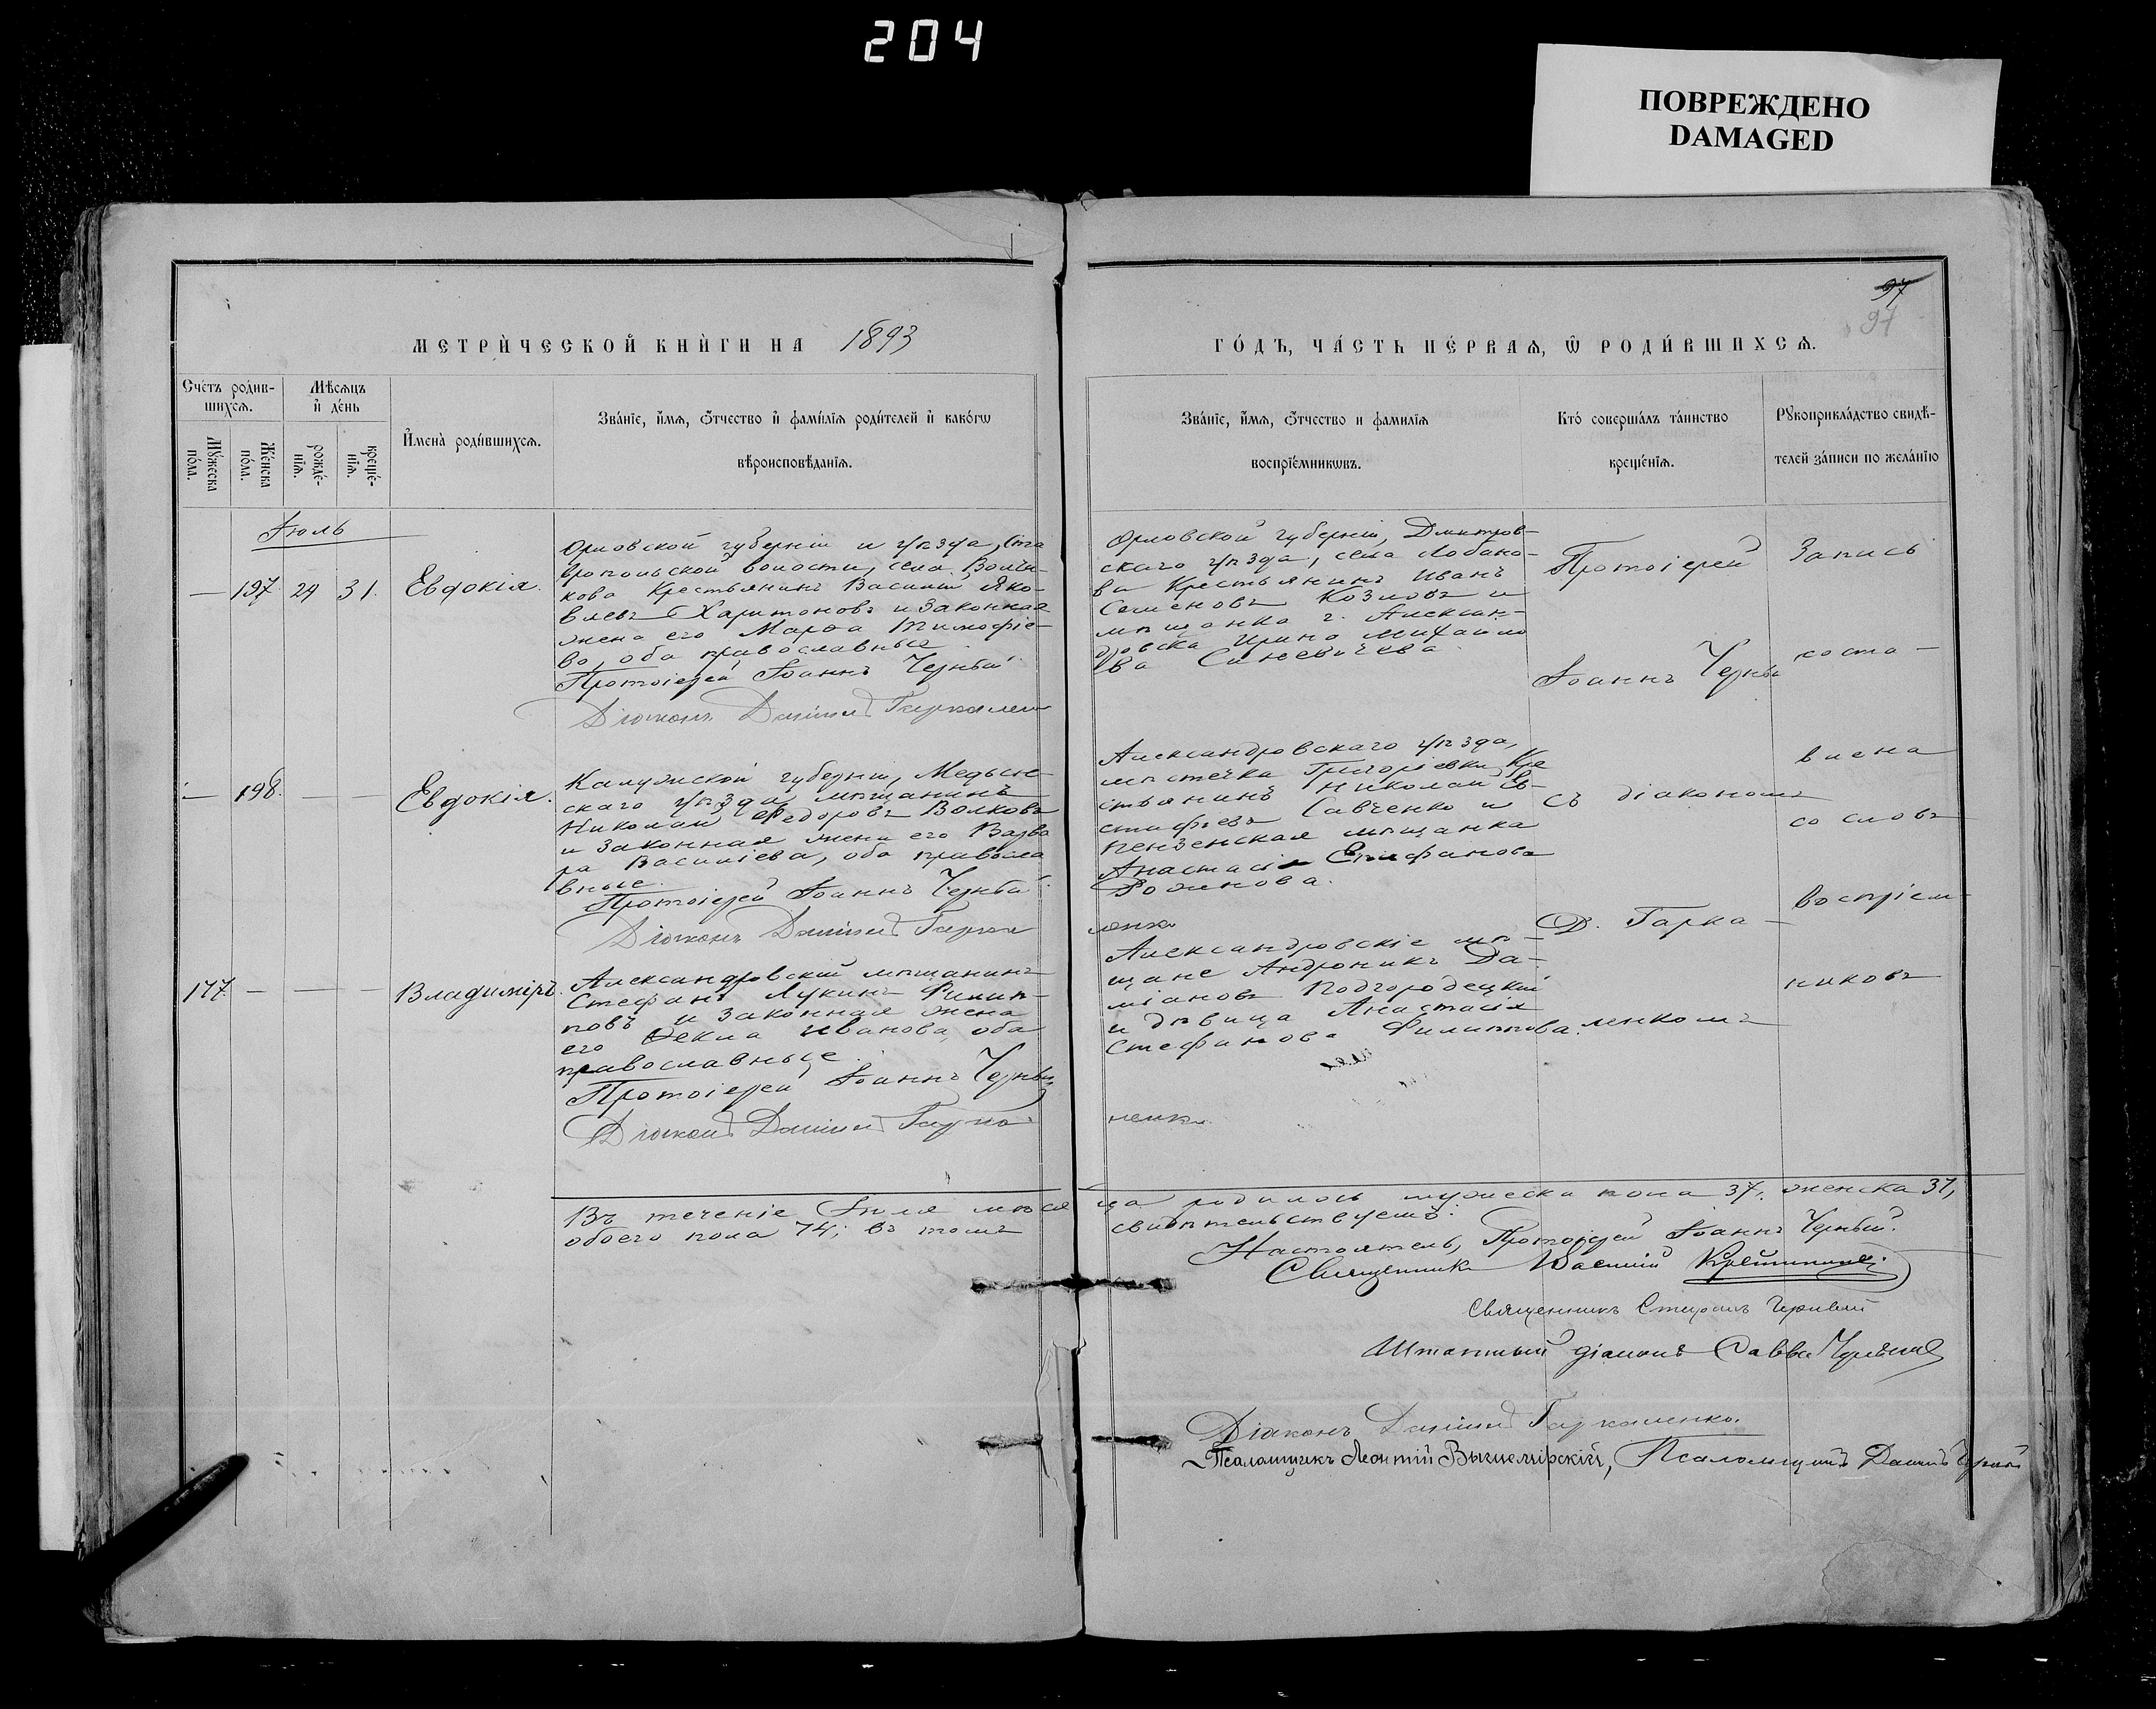 204
ПОВРЕЖДЕНО
DAMAGED
97
97
МЕТРИ́ЧЕСКОЙ КНИ́ГИ НА 1893
ГО́ДЪ, ЧА́СТЬ ПЕ́РВАѦ, Ѿ РОДИ́ВШИХСѦ.
Сче́тъ роди́вшихсѧ.
Мѣ́сѧцъ и҆ де́нь
Мꙋ́жеска по́ла.
Же́нска по́ла.
рожде́нїѧ.
креще́нїѧ.
И҆мена̀ роди́вшихсѧ.
Зва́нїе, и҆́мѧ, ѻ҆́тчество и҆ фами́лїѧ роди́телей и҆ како́гѡ
вѣроисповѣ́данїѧ.
Зва́нїе, и҆́мѧ, ѻ҆́тчество и фамилїѧ
воспрїе́мникѡвъ.
Кто̀ соверша́лъ та́инство
креще́нїѧ.
Рꙋкоприкла́дство свидѣ́-
телей за́писи по жела́нїю
Іюль
— 197. 24 31. Евдокія.
Орловской губерніи и уѣзда, Ста
вропольской волости, села
кова Крестьянинъ Василій Яко-
влевъ Харитоновъ и законная
жена его Марѳа Тимофіе-
ва, оба православные.
Протоіерей Іоаннъ Черный.
Діаконъ Даніилъ Гаркален
Орловской губерніи, Дмитров-
скаго уѣзда, села Лобано-
ва Крестьянинъ Иванъ
Семеновъ Козловъ и
мѣщанка г. Алексан-
дровска Ирина Михайло
ва
Протоіерей
Іоаннъ Черный
Запись
соста-
— 198. — — Евдокія.
Калужской губерніи, Медын-
скаго уѣзда мѣщанинъ
Николай Федоровъ Волковъ
и законная жена его Варва
ра Василіева, оба правосла
вные.
Протоіерей Іоаннъ Черный.
Діаконъ Даніилъ Гарка
Александровскаго уѣзда,
мѣстечка Григоріевки Кре
стьянинъ Николай Ев-
стафіевъ Савченко и
Пензенская мѣщанка
Анастасія Епифанова
Рожнова.
ленко
съ діакономъ
Д. Гарка-
влена
со словъ
воспріем-
177. — — — Владиміръ.
Александровскій мѣщанинъ
Стефанъ Лукинъ Филип-
повъ и законная жена
его Ѳекла Иванова, оба
православные.
Протоіерей Іоаннъ Черный
Діаконъ Даніилъ Гарка
Александровскіе мѣ-
щане Андроникъ Да-
міановъ Подгородецкій
и дѣвица Анастасія
Стефанова Филиппова.
ленко
ленкомъ
никовъ
Въ теченіе Іюля мѣся
ца родилось мужеска пола 37, женска 37,
обоего пола 74; въ томъ
свидѣтельствуемъ:
Настоятель, Протоіерей Іоаннъ Черный.
Священникъ Василій
Священникъ Стефанъ Черный
Штатный діаконъ Савва
Діаконъ Даніилъ Гаркаленко.
Псаломщикъ Леонтій Вышемірскій, Псаломщикъ Даніилъ Черный